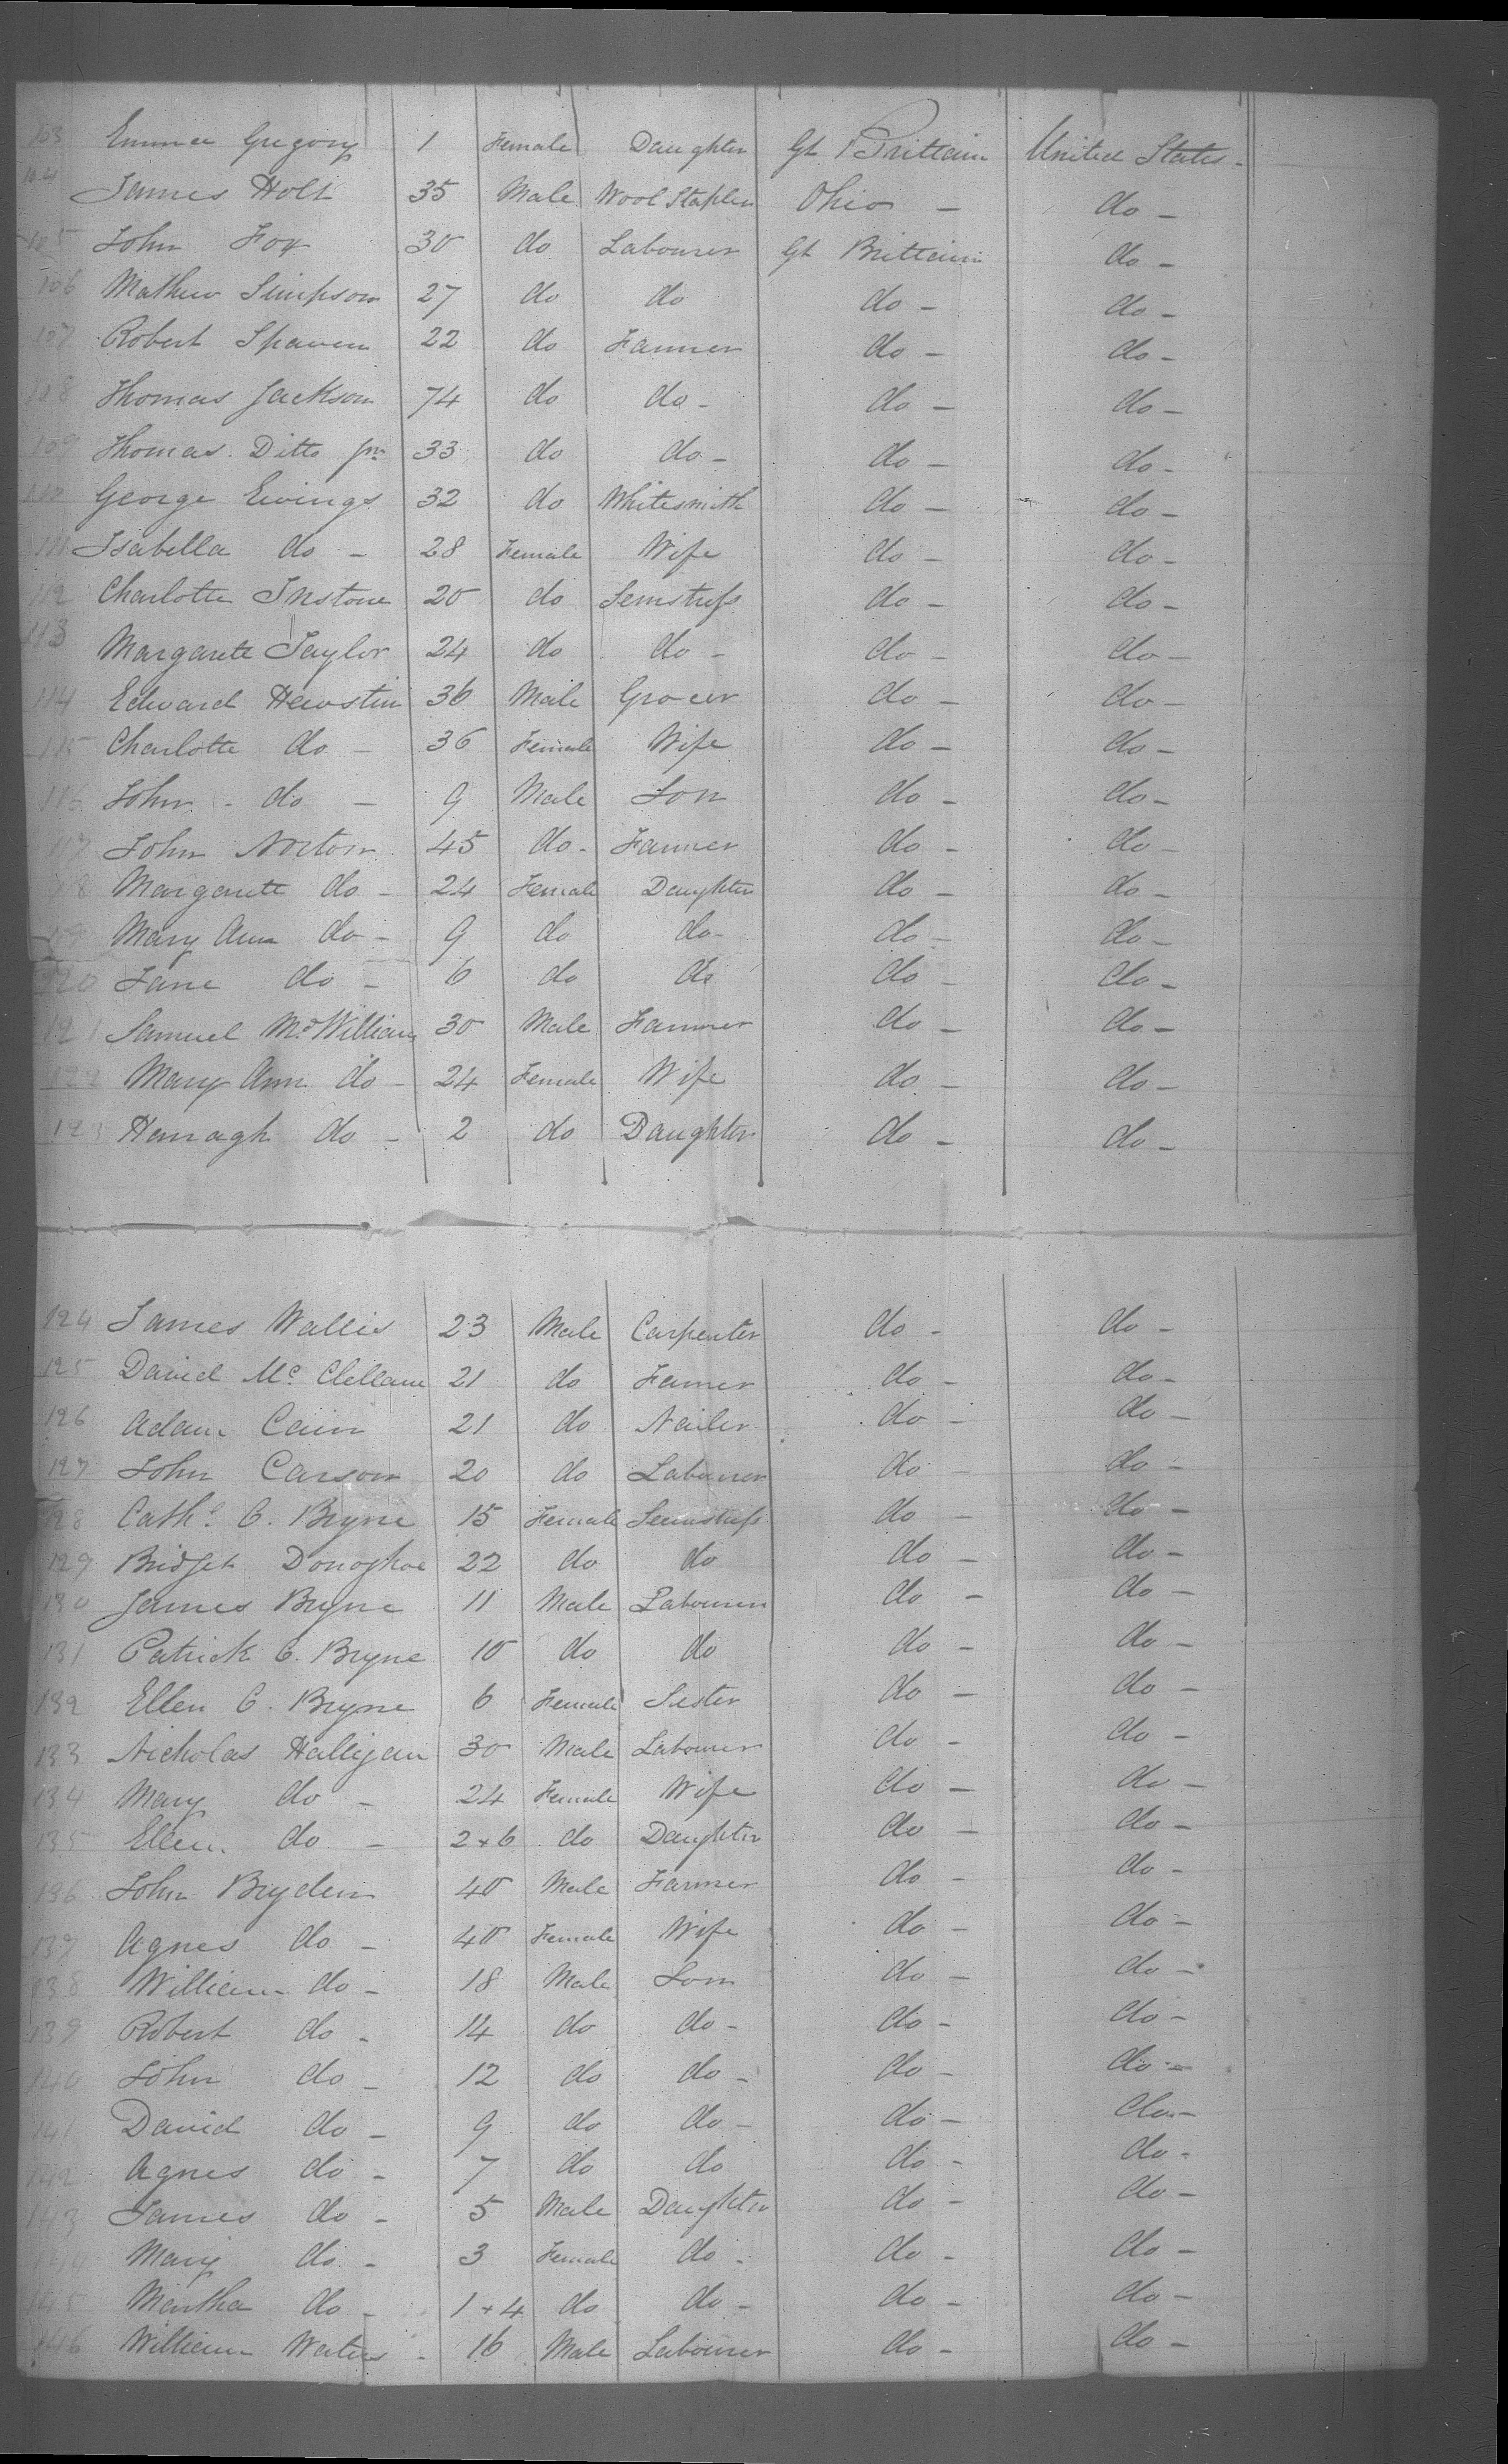 103 Emma Gregory 1 Female Daughter Gt Brittain United States -
104 James Holt 35 Male Wool Stapler Ohio - do -
105 John Fox 30 do Labourer Gt Brittain do -
106 Mathew Simpson 27 do do do - do -
107 Robert Spaven 22 do Farmer do - do -
108 Thomas Jackson 74 do do - do - do -
109 Thomas Ditto Jnr 33 do do - do - do -
110 George Ewings 32 do Whitesmith do - do -
111 Isabella do - 28 Female Wife do - do -
112 Charlotte Instone 20 do Semstress do - do -
113 Margarette Taylor 24 do do - do - do -
114 Edward Hewstin 36 Male Grocer do - do -
115 Charlotte do - 36 Female Wife do - do -
116 John - do - 9 Male Son do - do -
117 John Norton 45 do - Farmer do - do -
118 Margarette do - 24 Female Daughter do - do -
119 Mary Ann do - 9 do do - do - do -
120 Jane do - 6 do do do - do -
121 Samuel Mc Williams 30 Male Farmer do - do -
122 Mary Ann do - 24 Female Wife do - do -
123 Hannagh do - 2 do Daughter do - do -
124 James Wallis 23 Male Carpenter do - do -
125 David Mc Clellann 21 do Farmer do - do -
126 Adam Cain 21 do Nailer do - do -
127 John Carson 20 do Labourer do - do -
128 Cathe C. Bryne 15 Female Seemstress do - do -
129 Bridget Donoghoe 22 do do do - do -
130 James Bryne 11 Male Labourer do - do -
131 Patrick C. Bryne 10 do do do - do -
132 Ellen C. Bryne 6 Female Sister do - do -
133 Nicholas Halligan 30 Male Labourer do - do -
134 Mary do - 24 Female Wife do - do -
135 Ellen do - 2+6 do Daughter do - do -
136 John Bryden 40 Male Farmer do - do -
137 Agnes do - 40 Female Wife do - do -
138 William do - 18 Male Son do - do -
139 Robert do - 14 do do - do - do -
140 John do - 12 do do - do - do -
141 David do - 9 do do - do - do -
142 Agnes do - 7 do do do - do -
143 James do - 5 Male Daughter do - do -
144 Mary do - 3 Female do - do - do -
145 Martha do - 1+4 do do - do - do -
146 William Waters - 16 Male Labourer do - do -